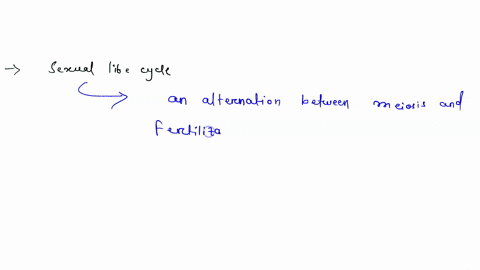 → Sexual life cycle
an alternation between meiosis and
fertiliza